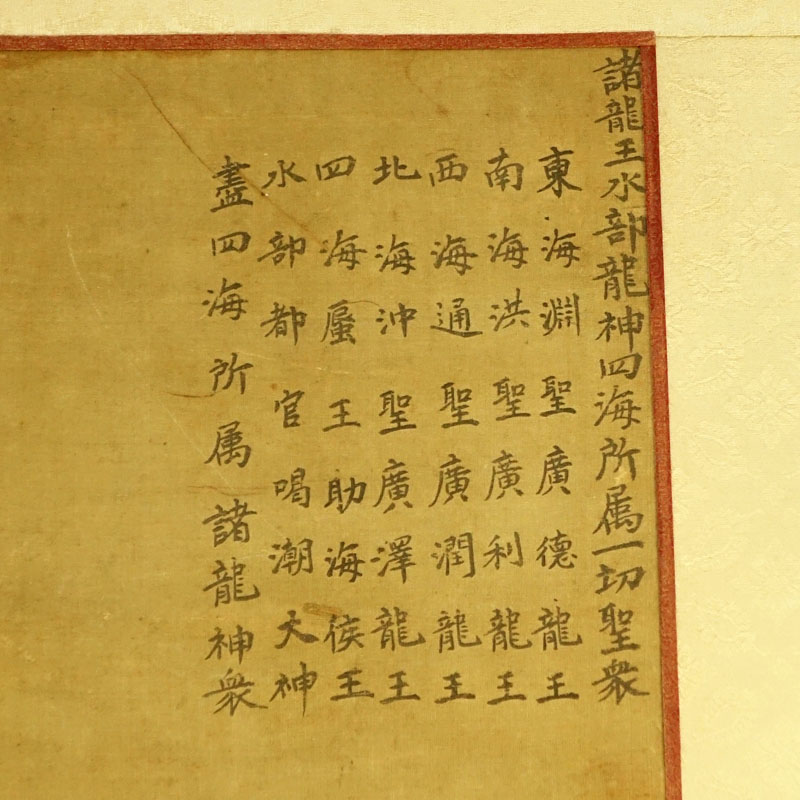 諸龍王水部龍神四海所属一切聖衆
東海淵聖廣德龍王
南海洪聖廣利龍王
西海通聖廣潤龍王
北海沖聖廣澤龍王
四海蜃王助海侯王
水部都官喝潮大神
盡四海所属諸龍神衆